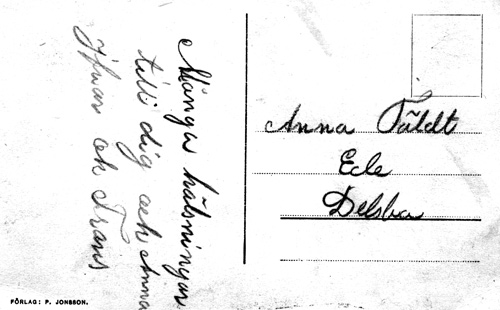 Många hälsningar
till dig och Anna
Ifrån och Frans
Anna Fäldt
Ede
Delsbo
FÖRLAG: P. JONSSON.